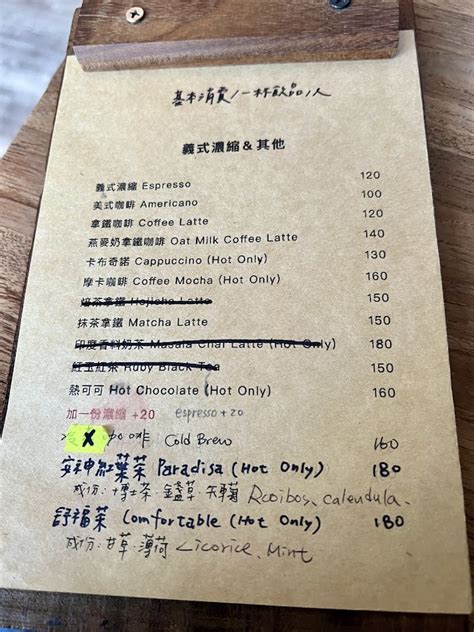 基本消費/一杯飲品/人
義式濃縮 & 其他
義式濃縮 Espresso 120
美式咖啡 Americano 100
拿鐵咖啡 Coffee Latte 120
燕麥奶拿鐵咖啡 Oat Milk Coffee Latte 140
卡布奇諾 Cappuccino (Hot Only) 130
摩卡咖啡 Coffee Mocha (Hot Only) 160
焙茶拿鐵 Hojicha Latte 150
抹茶拿鐵 Matcha Latte 150
印度香料奶茶 Masala Chai Latte (Hot Only) 180
紅玉紅茶 Ruby Black Tea 150
熱可可 Hot Chocolate (Hot Only) 160
加一份濃縮 +20 espresso +20
X 咖啡 Cold Brew 160
安神紅葉茶 Paradisa (Hot Only) 180
成份:博士茶.金盞草. Rooibos、calendula、
舒福茶 Comfortable (Hot Only) 180
成份:甘草.薄荷 Licorice、Mint